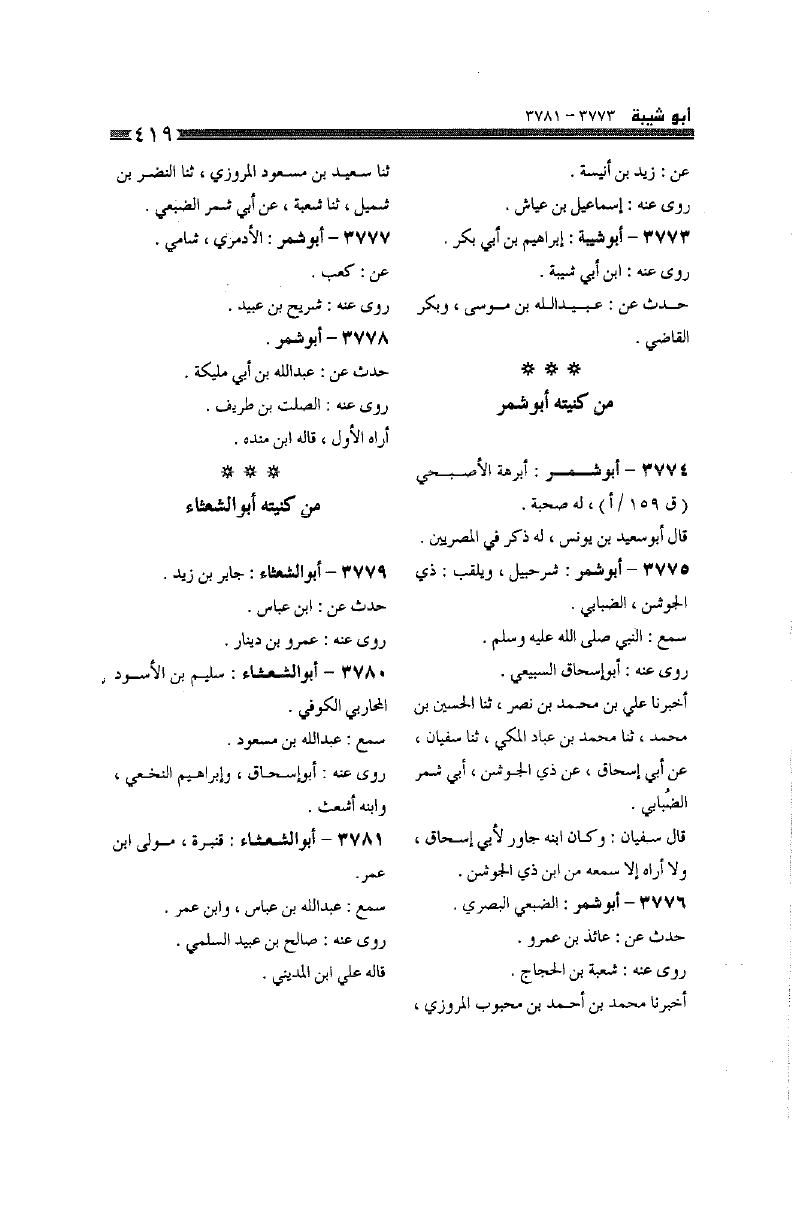 أبو شيبة ٣٧٧٣ - ٣٧٨١
٤١٩
عن : زيد بن أنيسة .
روى عنه : إسماعيل بن عياش .
٣٧٧٣ - أبو شيبة : إبراهيم بن أبي بكر .
روى عنه : ابن أبي شيبة .
حدث عن : عبيدالله بن موسى ، وبكر
القاضي .
* * *
من كنيته أبو شمر
٣٧٧٤ - أبو شمر : أبرهة الأصبحي
( ق ١٥٩ / أ ) ، له صحبة .
قال أبو سعيد بن يونس ، له ذكر في المصريين .
٣٧٧٥ - أبو شمر : شرحبيل ، ويلقب : ذي
الجوشن ، الضبابي .
سمع : النبي صلى الله عليه وسلم .
روى عنه : أبو إسحاق السبيعي .
أخبرنا علي بن محمد بن نصر ، ثنا الحسين بن
محمد ، ثنا محمد بن عباد المكي ، ثنا سفيان ،
عن أبي إسحاق ، عن ذي الجوشن ، أبي شمر
الضُبابي .
قال سفيان : وكان ابنه جاور لأبي إسحاق ،
ولا أراه إلا سمعه من ابن ذي الجوشن .
٣٧٧٦ - أبو شمر : الضبعي البصري .
حدث عن : عائذ بن عمرو .
روى عنه : شعبة بن الحجاج .
أخبرنا محمد بن أحمد بن محبوب المروزي ،
ثنا سعيد بن مسعود المروزي ، ثنا النضر بن
شميل ، ثنا شعبة ، عن أبي شمر الضبعي .
٣٧٧٧ - أبو شمر : الأدمري ، شامي .
عن : كعب .
روى عنه : شريح بن عبيد .
٣٧٧٨ - أبو شمر .
حدث عن : عبدالله بن أبي مليكة .
روى عنه : الصلت بن طريف .
أراه الأول ، قاله ابن منده .
* * *
من كنيته أبو الشعثاء
٣٧٧٩ - أبو الشعثاء : جابر بن زيد .
حدث عن : ابن عباس .
روى عنه : عمرو بن دينار .
٣٧٨٠ - أبو الشعثاء : سليم بن الأسود ,
المحاربي الكوفي .
سمع : عبدالله بن مسعود .
روى عنه : أبو إسحاق ، وإبراهيم النخعي ،
وابنه أشعث .
٣٧٨١ - أبو الشعثاء : قنبرة ، مولى ابن
عمر.
سمع : عبدالله بن عباس ، وابن عمر .
روى عنه : صالح بن عبيد السلمي .
قاله علي ابن المديني .